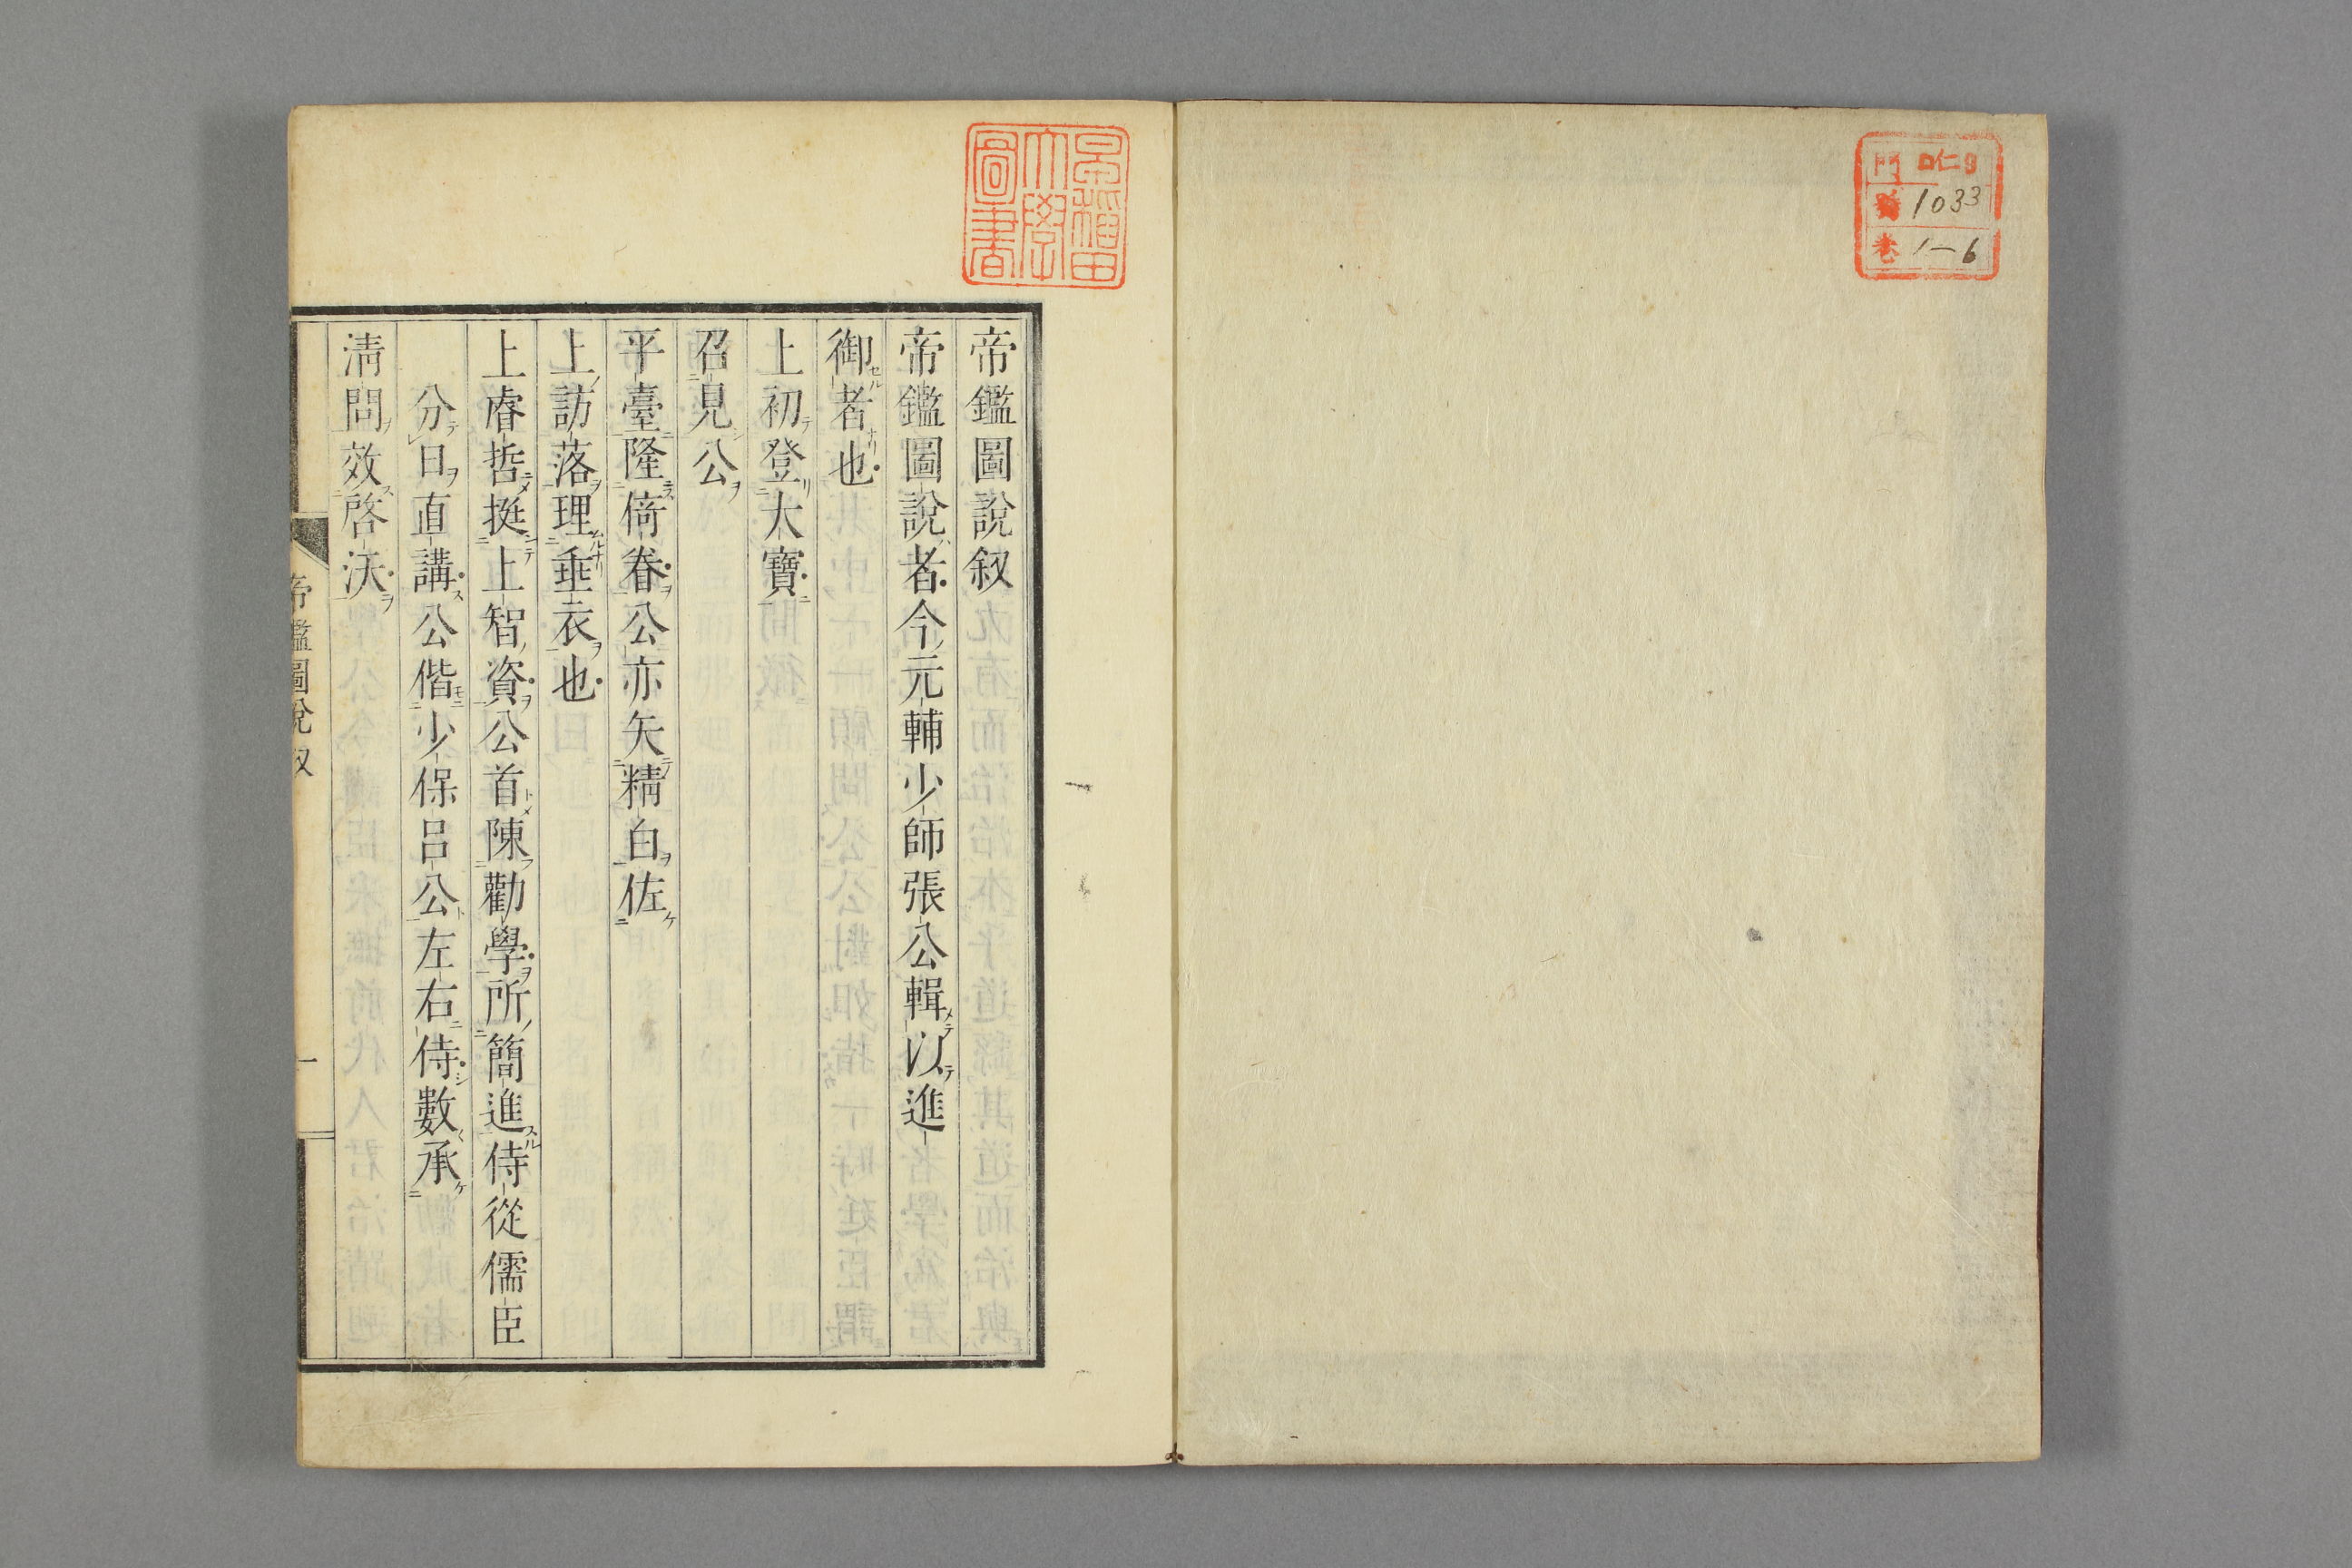 門 ロ仁9
號 1033
卷 1-6
早稲田大學圖書
帝鑑圖說叙
帝鑑圖說者今元輔少師張公輯以進
御者也
上初登大寶
召見公
平臺隆倚眷公亦矢精白佐
上訪落理垂衣也
上睿哲挺上智資公首陳勸學所簡進侍從儒臣
分日直講公偕少保呂公左右侍數承
清問效啓沃
帝鑑圖說叙
一